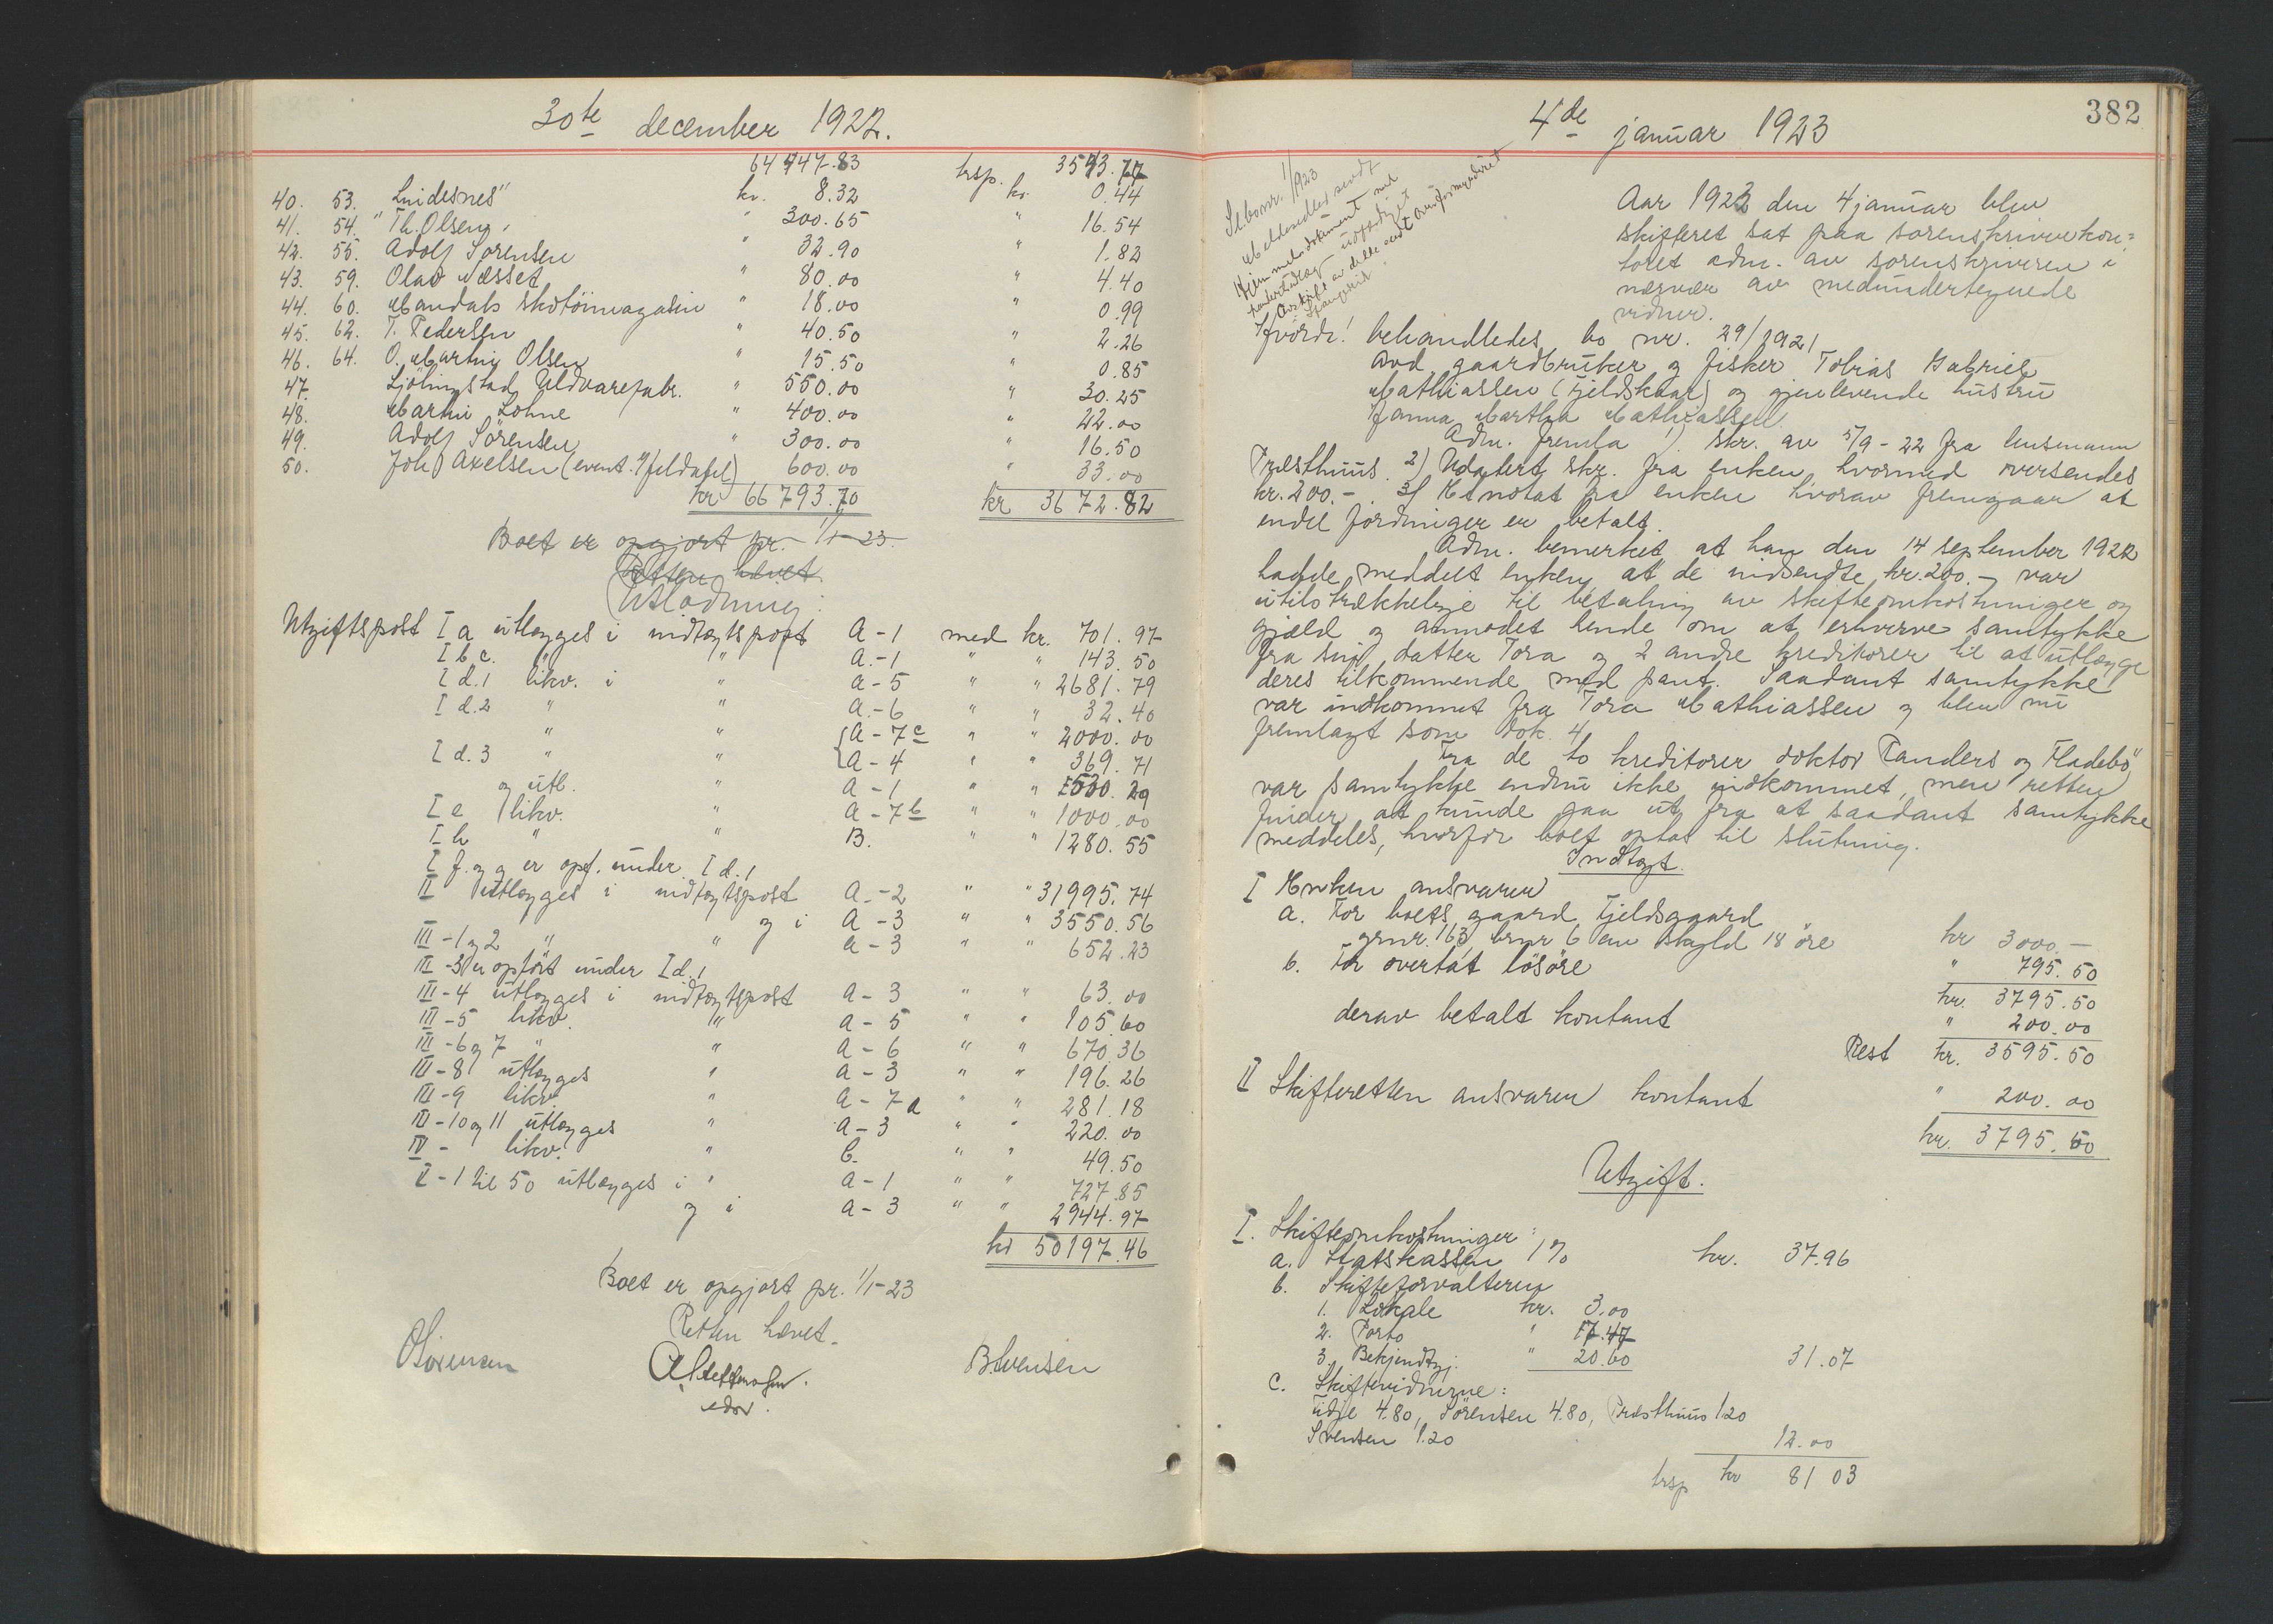 30te december 1922.
64 747.83 trsp. 3543.77
40. 53. "Lindesnes" kr. 8.32 kr. 0.44
41. 54. Th. Olsen " 300.65 " 16.54
42. 55. Adolf Sørensen " 32.90 " 1.82
43. 59. Olav Næsset " 80.00 " 4.40
44. 60. Mandals skotöimagasin " 18.00 " 0.99
45. 62. T. Pedersen " 40.50 " 2.26
46. 64. O. Martin Olsen " 15.50 " 0.85
47. Ljölingstad Uldvarefabr. " 550.00 " 30.25
48. Martin Lohne " 400.00 " 22.00
49. Adolf Sörensen " 300.00 " 16.50
50. Joh. Axelsen (event. ) 600.00 " 33.00
kr 66793.70 kr 3672.82
Boet er opgjort pr. 1/1-23.
Retten hævet.
Utlodning:
Utgiftspost I a utlægges i indtægtspost A-1 med kr. 701.97
I b c. " " A.-1 " " 143.50
I d.1 likv. i " A-5 " " 2681.79
I d.2 " " A.-6 " " 32.40
" " A-7c " " 2000.00
I d.3 " " A-4 " " 369.71
og utl. " A-1 " " 1530.29
I e likv. " A-7b " " 1000.00
I h " " B. " " 1280.55
I f. og g er opf. under I d.1
II Utlægges i indtægtspost A.-2 " " 31995.74
og i A-3 " " 3550.56
III-1 og 2 " " A-3 " " 652.23
III-3 er opført under I d.1
III-4 utlægges i indtægtspost A-3 " " 63.00
III-5 likv. " A-5 " " 105.60
III-6 og 7 " " A-6 " " 670.36
III-8 utlægges " A-3 " " 196.26
III-9 likv. " A-7a " " 281.18
III-10 og 11 utlægges " A-3 " " 220.00
IV - likv. " C. " " 49.50
V-1 til 50 utlægges i " A-1 " " 727.85
og i A-3 " " 2944.97
kr 50197.46
Boet er opgjort pr. 1/1-23
Retten hævet.
B. Svensen
edsv.
382
4de januar 1923
1/1923
Meldeseddel sendt
Hjemmelsdokument med
utfærdiget
Avskrift av dette sendt overformynderiet
Aar 1923 den 4 januar blev
skifteret sat paa sorenskriverkon=
toret adm. av sorenskriveren i
nærvær av medundertegnede
vidner.
Hvorda! behandledes bo nr. 29/1921
avd. gaardbruker og fisker Tobias Gabriel
Mathiassen (Fjeldskaar) og gjenlevende hustru
Hanna Martha Mathiassen.
Adm. fremla 1) skr. av 5/9-22 fra lensmann
Præsthuus. 2) Udatert skr. fra enken, hvormed oversendes
kr. 200.-. 3) Et notat fra enken hvorav fremgaar at
endel fordringer er betalt.
Adm. bemerket at han den 14 september 1922
hadde meddelt enken at de indsendte kr. 200.- var
utilstrækkelige til betaling av skifteomkostninger og
gjæld og anmodet hende om at erhverve samtykke
fra sin datter Tora og 2 andre kreditorer til at utlægge
deres tilkommende med pant. Saadant samtykke
var indkommet fra Tora Mathiassen og blev nu
fremlagt som dok. 4.
Fra de to kreditorer doktor Randers og Fladebö
var samtykke endnu ikke indkommet, men retten
finder at kunde gaa ut fra at saadant samtykke
meddeles, hvorfor boet optas til slutning.
Indtægt.
I Enken ansvarer
a. For boets gaard Fjeldsgaard
grnr. 163 brnr 6 av skyld 18 öre kr 3000.-
b. For overtat lösöre " 795.50
kr. 3795.50
derav betalt kontant " 200.00
Rest kr. 3595.50
II Skifteretten ansvarer kontant " 200.00
kr. 3795.50
Utgift.
I. Skifteomkostninger:
a. Statskassen 1% kr. 37.96
b. Skifteforvalteren
1. Lokale kr. 3.00
2. Porto " 7.47
3. Bekjendtgj. " 20.60 31.07
c. Skiftevidnerne:
Udje 4.80, Sörensen 4.80, Præsthuus 1.20
Svensen 1.20 12.00
trsp kr 81 03